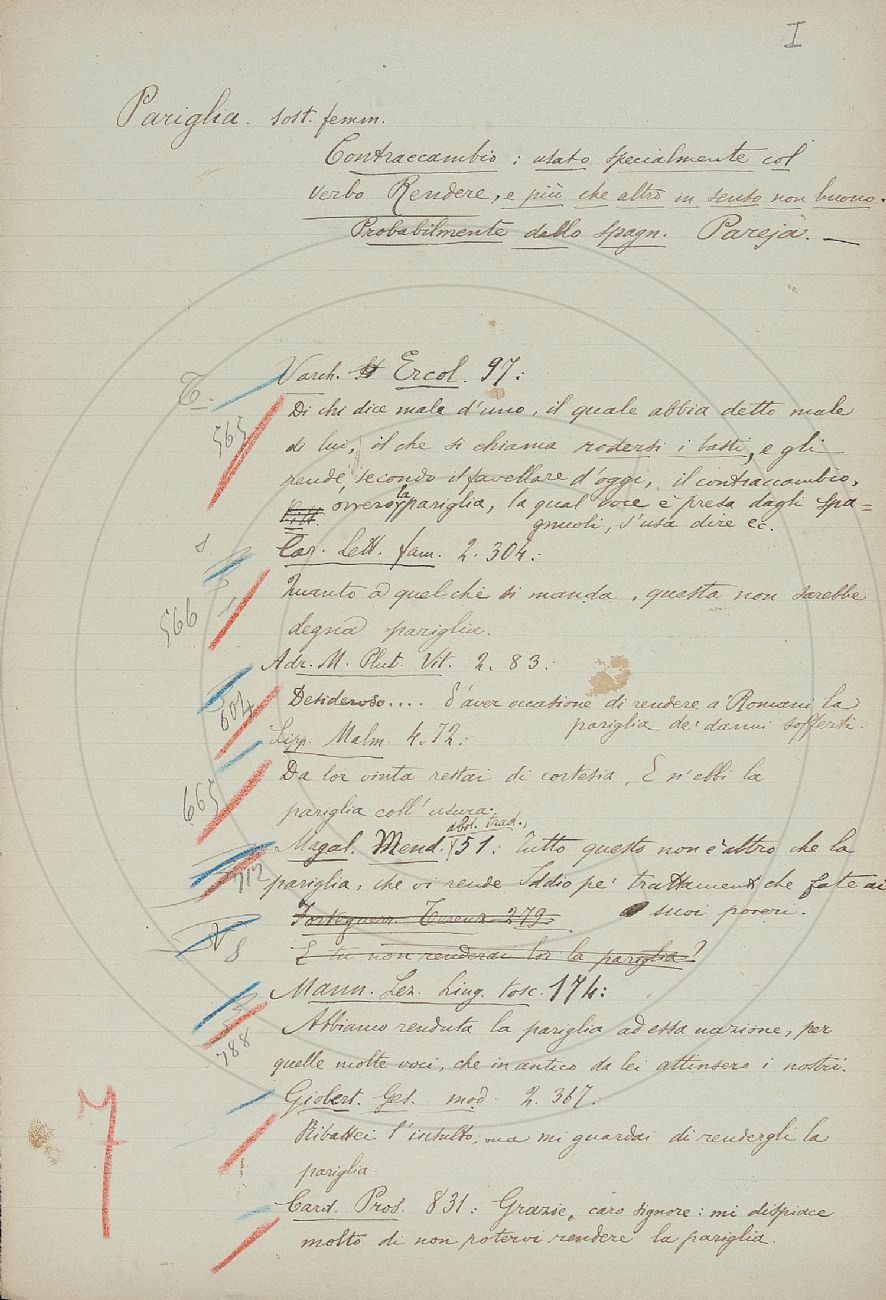 I
Pariglia. sost. femm.
Contraccambio; usato specialmente col
verbo Rendere, e più che altro in senso non buono.
Probabilmente dallo spagn. Pareja. —
T.
Varch. Ercol. 97:
565
Di chi dice male d'uno, il quale abbia detto male
di lui, il che si chiama rodersi i basti, e gli
rende, secondo il favellare d'oggi, il contraccambio,
ovvero la pariglia, la qual voce è presa dagli Spa=
gnuoli, s'usa dire ec.
Car. Lett. fam. 2. 304:
566
Quanto a quel che si manda, questa non sarebbe
degna pariglia.
Adr. M. Plut. Vit. 2. 83:
604
Desideroso.... d'aver occasione di rendere a' Romani la
pariglia de' danni sofferti.
Lipp. Malm. 4. 72:
665
Da lor vinta restai di cortesia, E n'ebbi la
pariglia coll'usura.
abst. trad.
Magal. Mend. 51: Tutto questo non è altro che la
712
pariglia, che vi rende Iddio pe' trattamenti che fate ai
suoi poveri.
Forteguerr. Terenz. 279.
8
E tu non renderai lor la pariglia?
Mann. Lez. Ling. tosc. 174:
788
Abbiamo renduta la pariglia ad essa nazione, per
quelle molte voci, che in antico da lei attinsero i nostri.
Giobert. Ges. mod. 2. 367:
Ribattei l'insulto, ma mi guardai di rendergli la
pariglia.
7
Card. Pros. 831: Grazie, caro signore: mi dispiace
molto di non potervi rendere la pariglia.